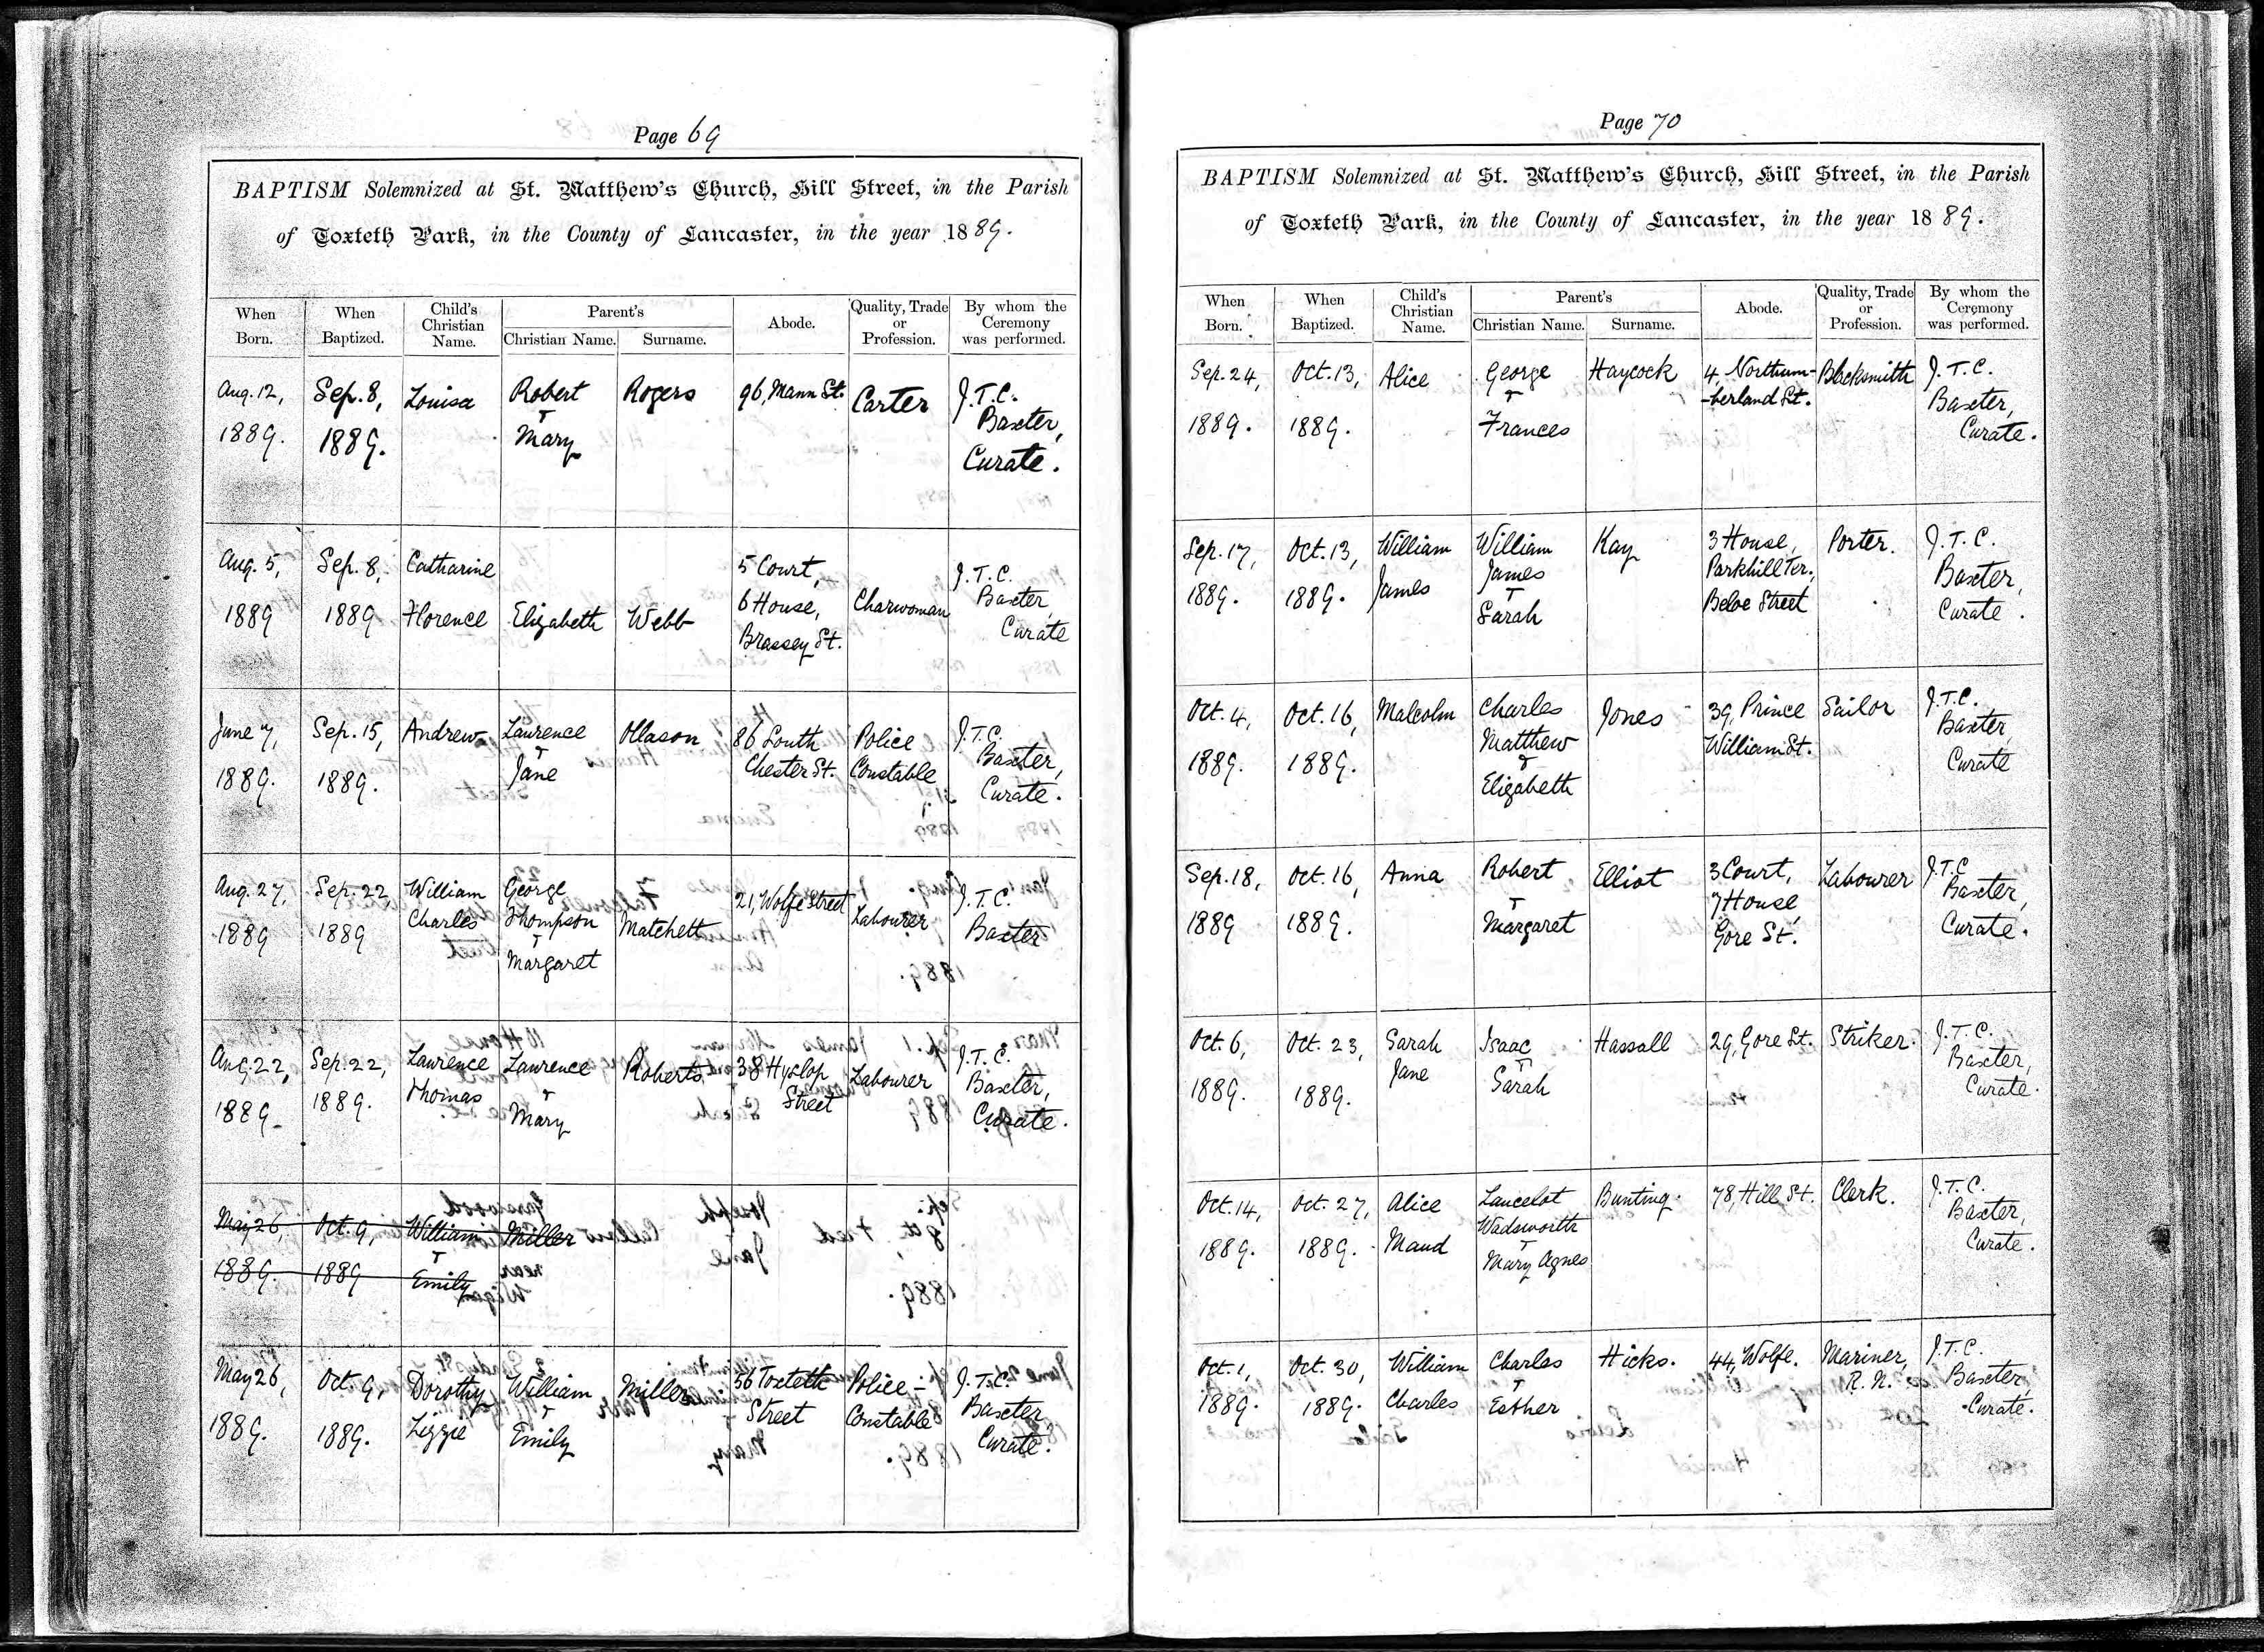 Page 69
BAPTISM Solemnized at St. Matthew's Church, Hill Street, in the Parish
of Toxteth Park, in the County of Lancaster, in the year 1889.
When Born. When Baptized. Child's Christian Name. Parent's Christian Name. Surname. Abode. Quality, Trade or Profession. By whom the Ceremony was performed.
Aug. 12, Sep. 8, Louisa Robert Rogers 96, Mann St. Carter J. T. C.
1889. 1889. + Mary Baxter,
Curate.
Aug. 5, Sep. 8, Catharine 5 Court, J. T. C.
1889 1889 Florence Elizabeth Webb 6 House, Charwoman Baxter,
Brassey St. Curate
June 7, Sep. 15, Andrew Laurence Ollason 86 South Police J. T. C.
1889. 1889. + Jane Chester St. Constable Baxter,
Curate.
Aug. 27, Sep. 22, William George 21, Wolfe Street J. T. C.
1889 1889 Charles Thompson Matchett Labourer Baxter
+ Margaret
Aug. 22, Sep. 22, Lawrence Laurence Roberts 38 Hyslop Labourer J. T. C.
1889. 1889. Thomas + Street Baxter,
Mary Curate.
May 26, Oct. 9, William Miller
+
1889. 1889 Emily
May 26, Oct. 9, Dorothy William Miller 56 Toxteth Police- J. T. C.
1889. 1889. Lizzie + Emily Street Constable Baxter
Curate.
Page 70
BAPTISM Solemnized at St. Matthew's Church, Hill Street, in the Parish
of Toxteth Park, in the County of Lancaster, in the year 1889.
When Born. When Baptized. Child's Christian Name. Parent's Christian Name. Surname. Abode. Quality, Trade or Profession. By whom the Ceremony was performed.
Sep. 24, Oct. 13, Alice George Haycock 4, Northum- Blacksmith J. T. C.
1889. 1889. + Frances -berland St. Baxter,
Curate.
Sep. 17, Oct. 13, William William Kay 3 House, Porter. J. T. C.
1889. 1889. James James Parkhill Ter., Baxter,
+ Sarah Beloe Street Curate.
Oct. 4, Oct. 16, Malcolm Charles Jones 39, Prince Sailor J. T. C.
1889. 1889. Matthew William St. Baxter,
& Elizabeth Curate
Sep. 18, Oct. 16, Anna Robert Elliot 3 Court, Labourer J. T. C
1889 1889. + 7 House, Baxter,
Margaret Gore St. Curate.
Oct. 6, Oct. 23, Sarah Isaac Hassall 29, Gore St. Striker. J. T. C.
1889. 1889. Jane + Sarah Baxter,
Curate.
Oct. 14, Oct. 27, Alice Lancelot Bunting. 78, Hill St. Clerk. J. T. C.
1889. 1889. Maud Wadsworth Baxter,
+ Mary Agnes Curate.
Oct. 1, Oct. 30, William Charles Hicks. 44, Wolfe. Mariner, J. T. C.
1889. 1889. Charles + Esther R. N. Baxter,
Curate.